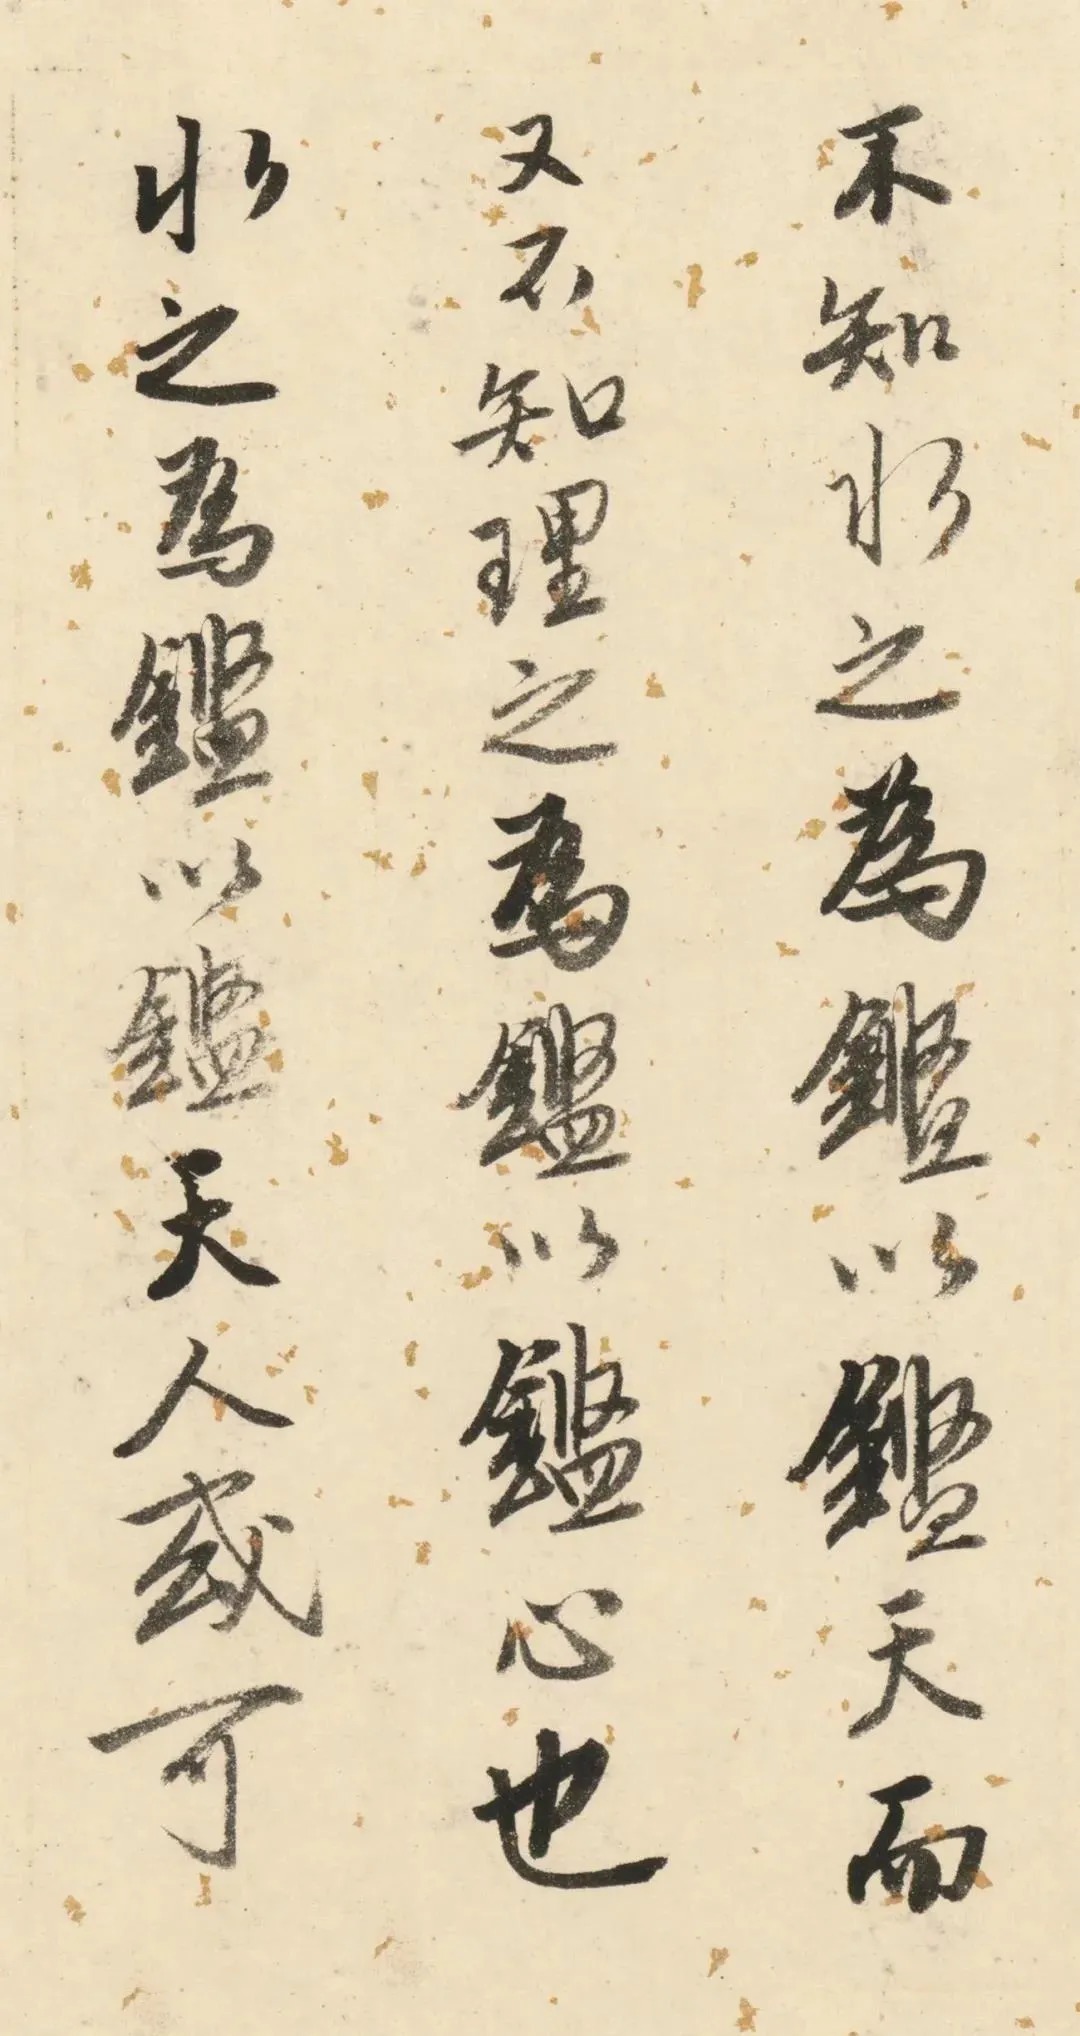 不知水之為鑑以鑑天而
又不知理之為鑑以鑑心也
水之為鑑以鑑天人或可